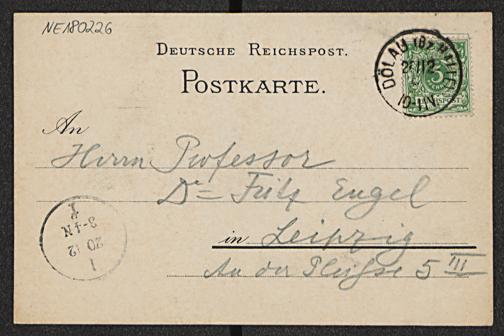 NE180226
DEUTSCHE REICHSPOST.
POSTKARTE.
DÖLAU
10-11V
An
Herrn Professor
Dr Fritz Engel
in Leipzig
An der Pleiße 5 III
20 12
3-4N
1